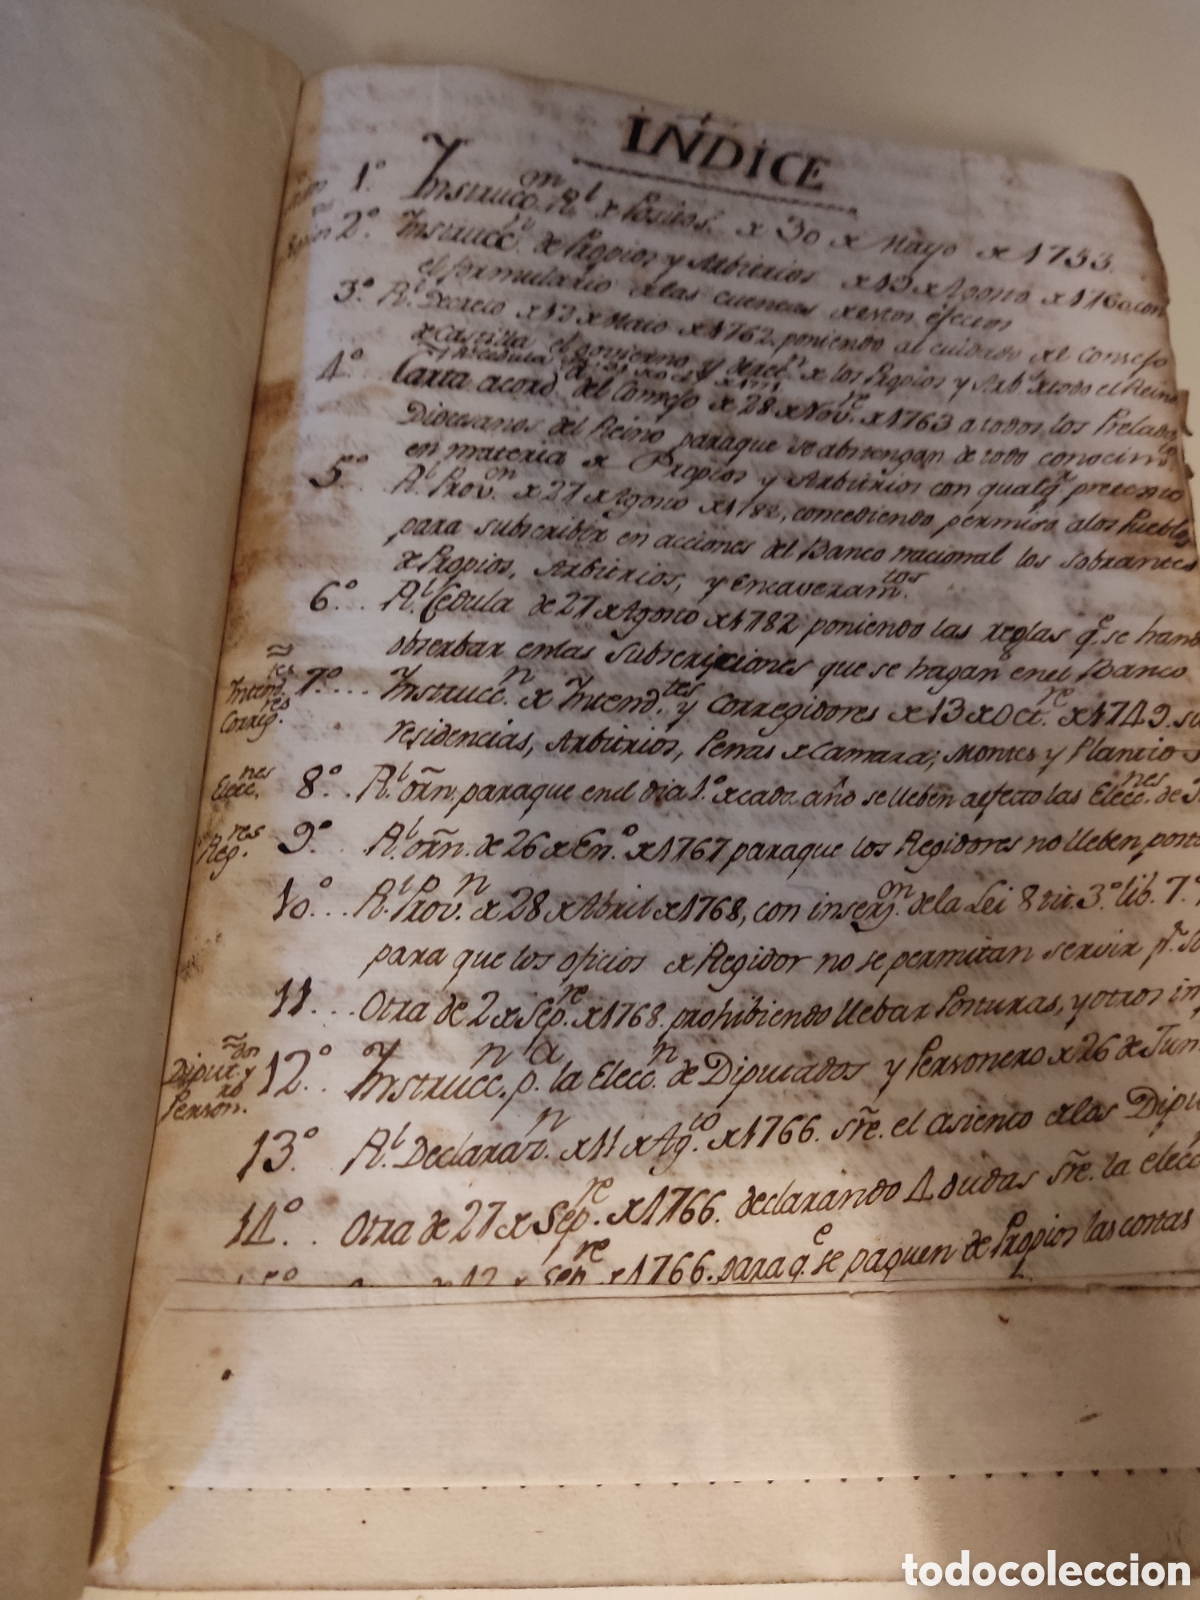 INDICE
1.º Instrucc.on R.l de Positos. de 30 de Mayo de 1753.
2.º Instrucc.n de Propios y Arbitrios de 19 de Agosto de 1760, con
el formulario de las cuentas de estos efectos
3.º R.l Decreto de 12 de Maio de 1762 poniendo al cuidado del Consejo
de Castilla el govierno y direcc.n de los Propios y Arb.s de todo el Reino
4.º Carta acord. del Consejo de 28 de Nov.re de 1763 a todos los Prelados
Diocesanos del Reino paraque se abstengan de todo conocim.to
en materia de Propios y Arbitrios con qualq.r pretexto
5.º R.l Prov.on de 27 de Agosto de 1782, concediendo permiso a los Pueblos
para subscribir en acciones del Banco nacional los sobrantes
de Propios, Arbitrios, y Encavezam.tos
6.º.. R.l Cedula de 27 de Agosto de 1782 poniendo las reglas q.e se han de
obserbar en las subscripciones que se hagan en el Banco
Intend.tes Correg.res 7.º... Instrucc.n de Intend.tes y Corregidores de 13 de Oct.re de 1749.
residencias, Arbitrios, Penas de Camara, Montes y Plantio
Elecc.nes 8.º.. R.l orñ. paraque en el dia 1.º de cada año se lleben a efecto las Elecc.nes de
Reg.res 9.º R.l orñ. de 26 de En.º de 1767 paraque los Regidores no lleben
10.º... R.l Prov.n de 28 de Abril de 1768, con inserz.on de la Lei 8 tit. 3.º lib. 7.º
para que los oficios de Regidor no se permitan servir p.r
11... Otra de 2 de Sep.re de 1768. prohibiendo llebar Posturas, y otros
Diput.dos y Person.ro 12.º.. Instrucc.n p.a la Elecc.n de Diputados y Personero de 26 de Jun
13.º R.l Declaraz.n de 11 de Ag.to de 1766. sr̃e. el asiento de los Dipu
14.º.. Otra de 27 de Sep.re de 1766. declarando 4 dudas sr̃e. la elecc
de 12 de Sep.re de 1766. para q.e se paguen de Propios las costas
todocoleccion